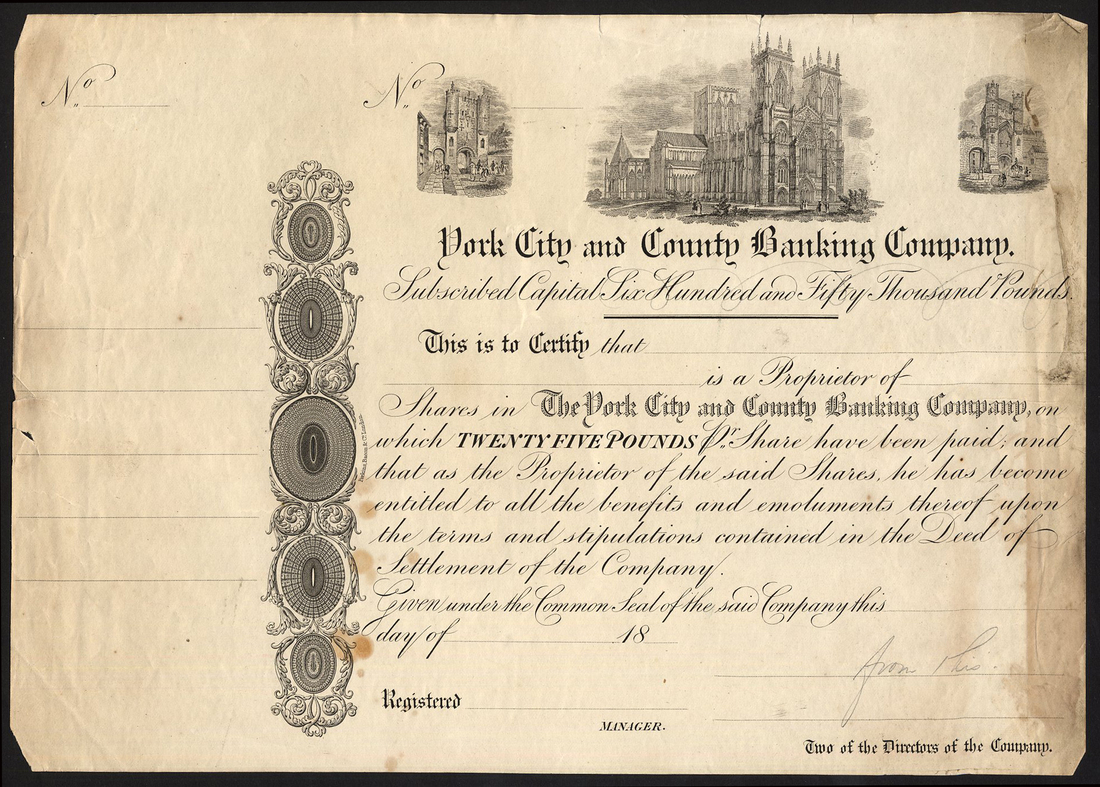 No
No
York City and County Banking Company.
Subscribed Capital Six Hundred and Fifty Thousand Pounds.
This is to Certify that
is a Proprietor of
Shares in The York City and County Banking Company, on
which TWENTY FIVE POUNDS Pr. Share have been paid; and
that as the Proprietor of the said Shares, he has become
entitled to all the benefits and emoluments thereof upon
the terms and stipulations contained in the Deed of
Settlement of the Company.
Given under the Common Seal of the said Company this
day of 18
from this.
Registered
MANAGER.
Two of the Directors of the Company.